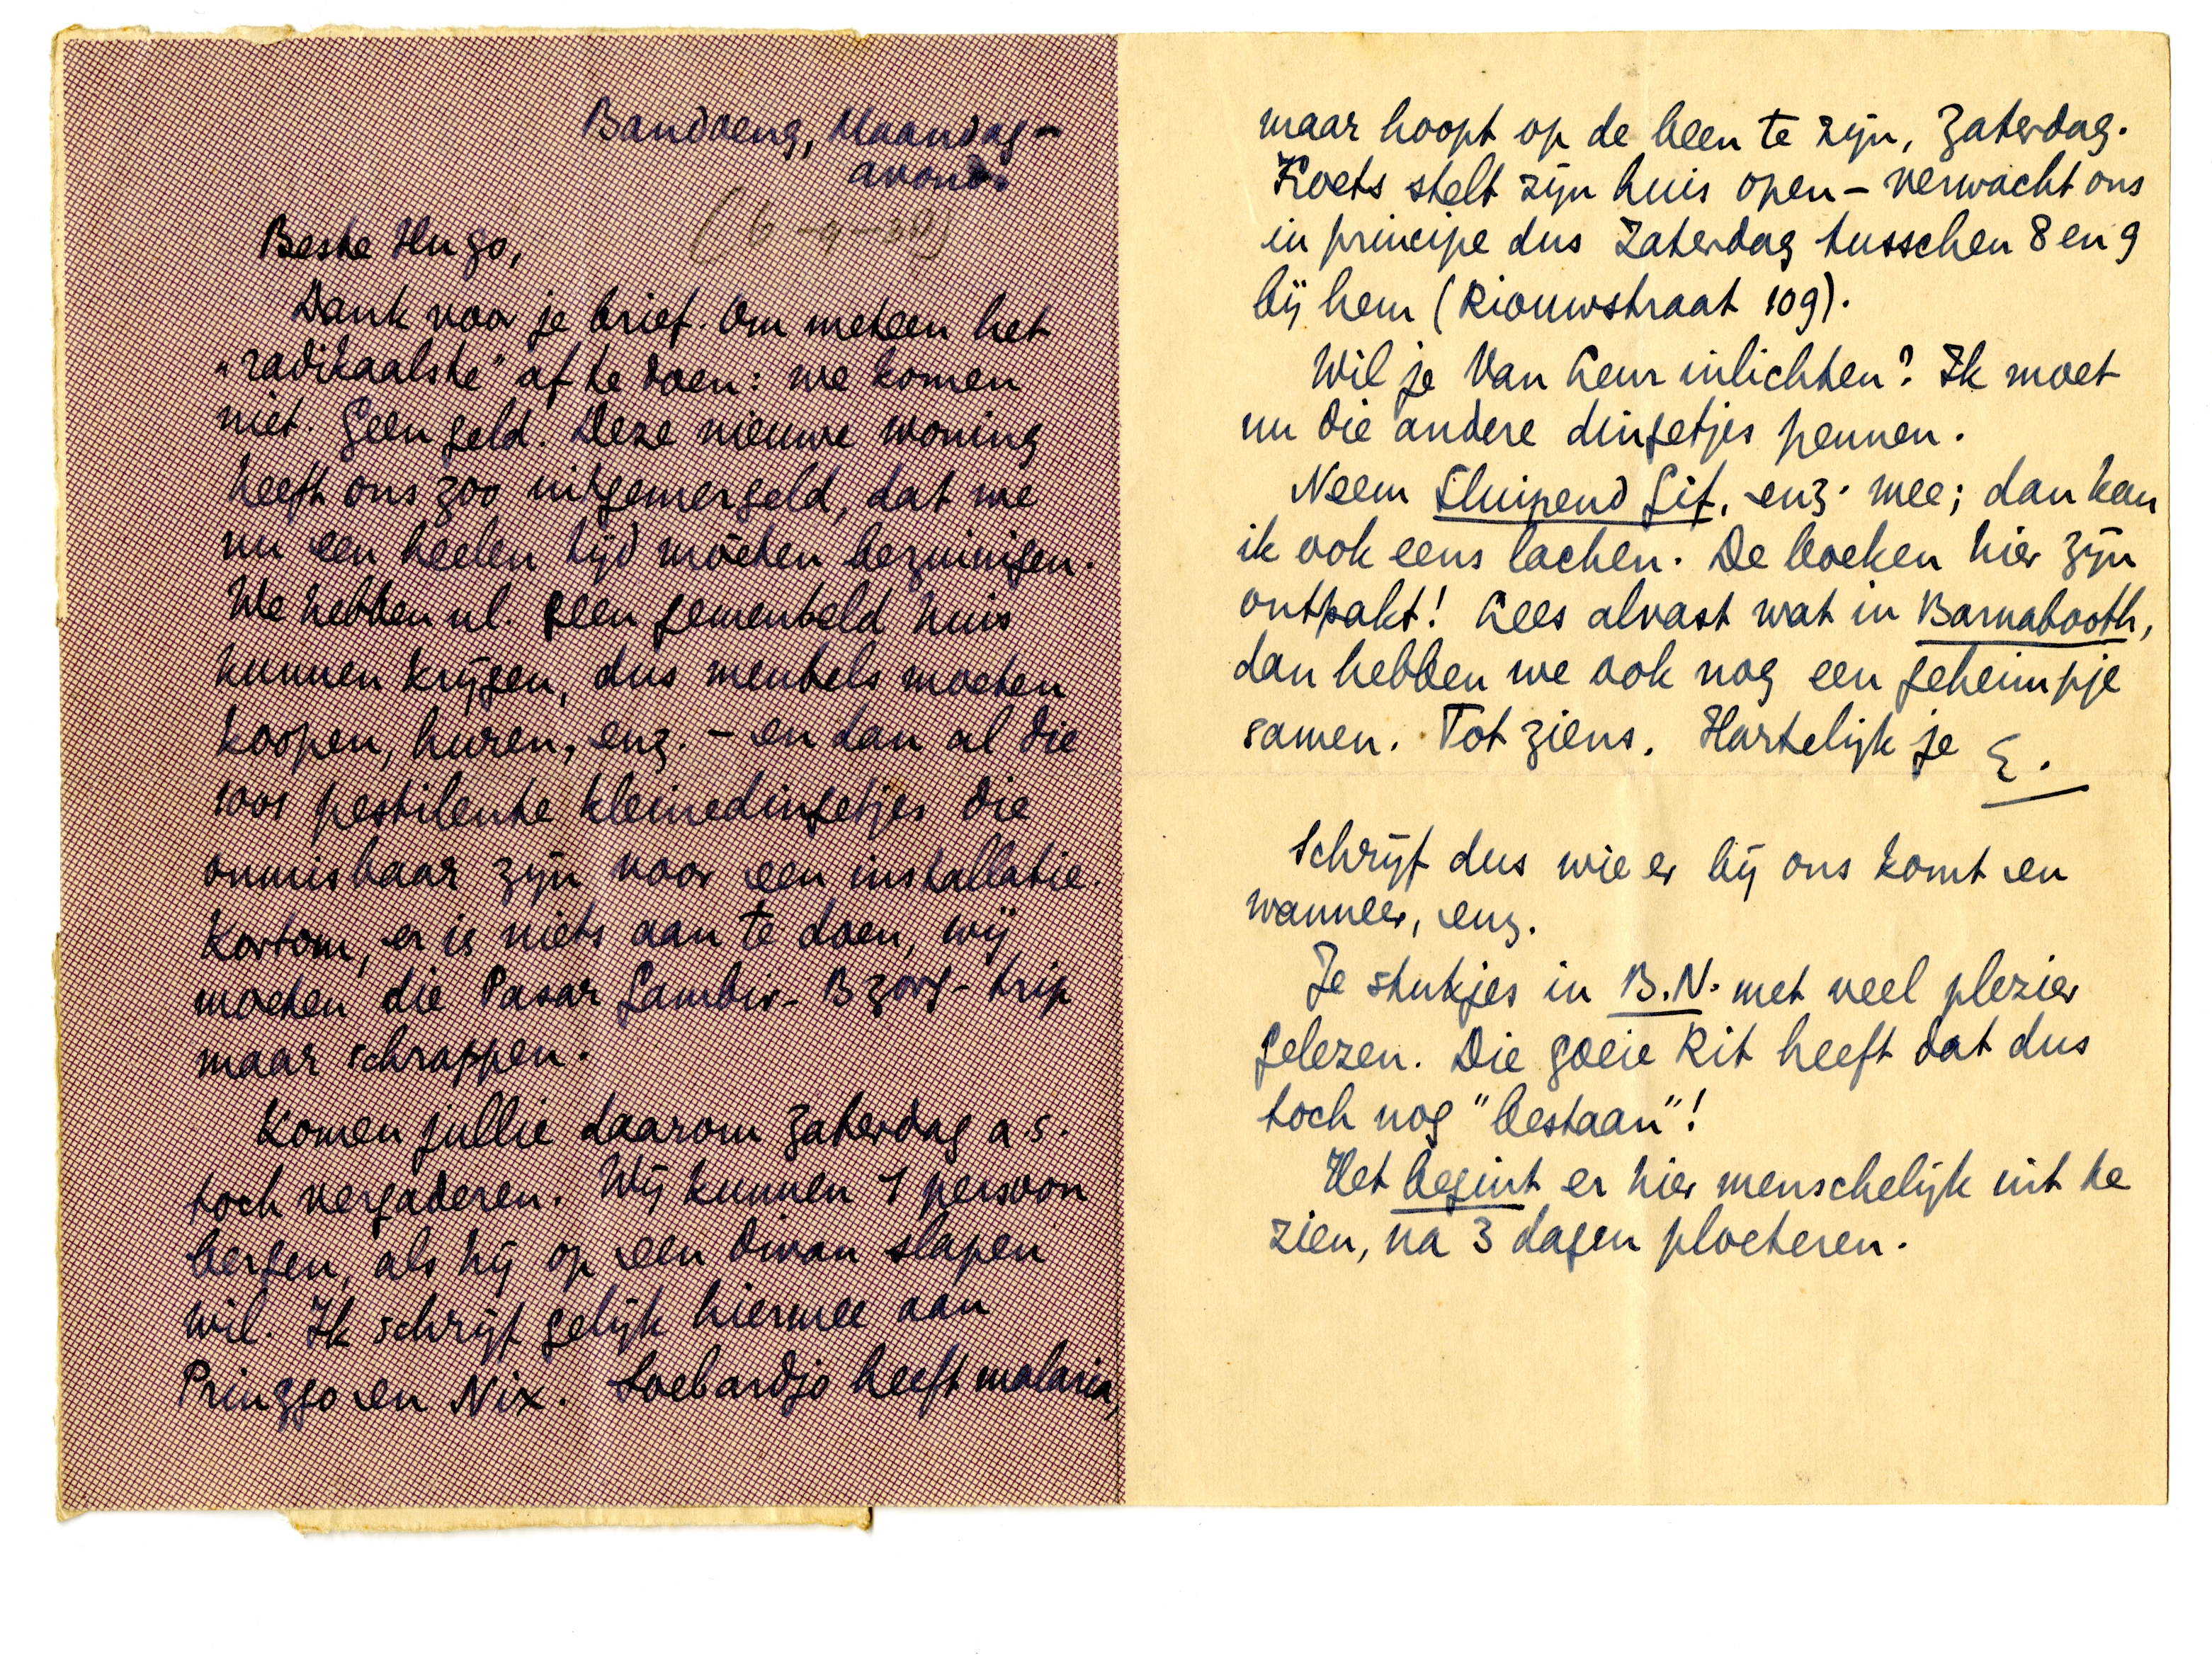 Bandoeng, Maandag-
avond.
Beste Hugo,
Dank voor je brief. Om meteen het
"radikaalste" af te doen: we komen
niet. Geen geld. Deze nieuwe woning
heeft ons zoo uitgemergeld, dat we
nu een heelen tijd moeten bezuinigen.
We hebben nl. geen gemeubeld huis
kunnen krijgen, dus meubels moeten
koopen, huren, enz. – en dan al die
1001 pestilente kleinedingetjes die
onmisbaar zijn voor een installatie
Kortom, er is niets aan te doen, wij
moeten die Pasar Gambir-Bzorg-trip
maar schrappen.
Komen jullie daarom Zaterdag a.s.
toch vergaderen. Wij kunnen 1 persoon
bergen, als hij op een divan slapen
wil. Ik schrijf gelijk hiermee aan
Pringgo en Nix. Soebardjo heeft malaria,
maar hoopt op de been te zijn, Zaterdag.
Koets stelt zijn huis open – verwacht ons
in principe dus Zaterdag tusschen 8 en 9
bij hem (Riouwstraat 109).
Wil je Van Leur inlichten? Ik moet
nu die andere dingetjes pennen.
Neem Sluipend Gif, enz. mee; dan kan
ik ook eens lachen. De boeken hier zijn
ontpakt! Lees alvast wat in Barnabooth,
dan hebben we ook nog een geheimpje
samen. Tot ziens. Hartelijk je E.
Schrijf dus wie er bij ons komt en
wanneer, enz.
Je stukjes in B.N. met veel plezier
gelezen. Die goeie Rit heeft dat dus
toch nog "bestaan"!
Het begint er hier menschelijk uit te
zien, na 3 dagen ploeteren.